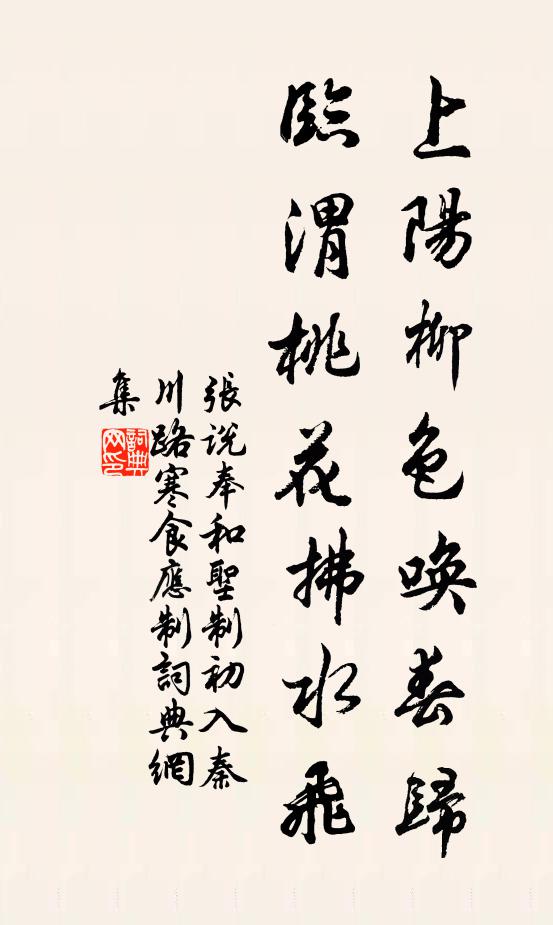 上陽柳色喚春歸
臨渭桃花拂水飛
張説奉和聖制初入秦
川路寒食應制詞典網
集
詞典
网印